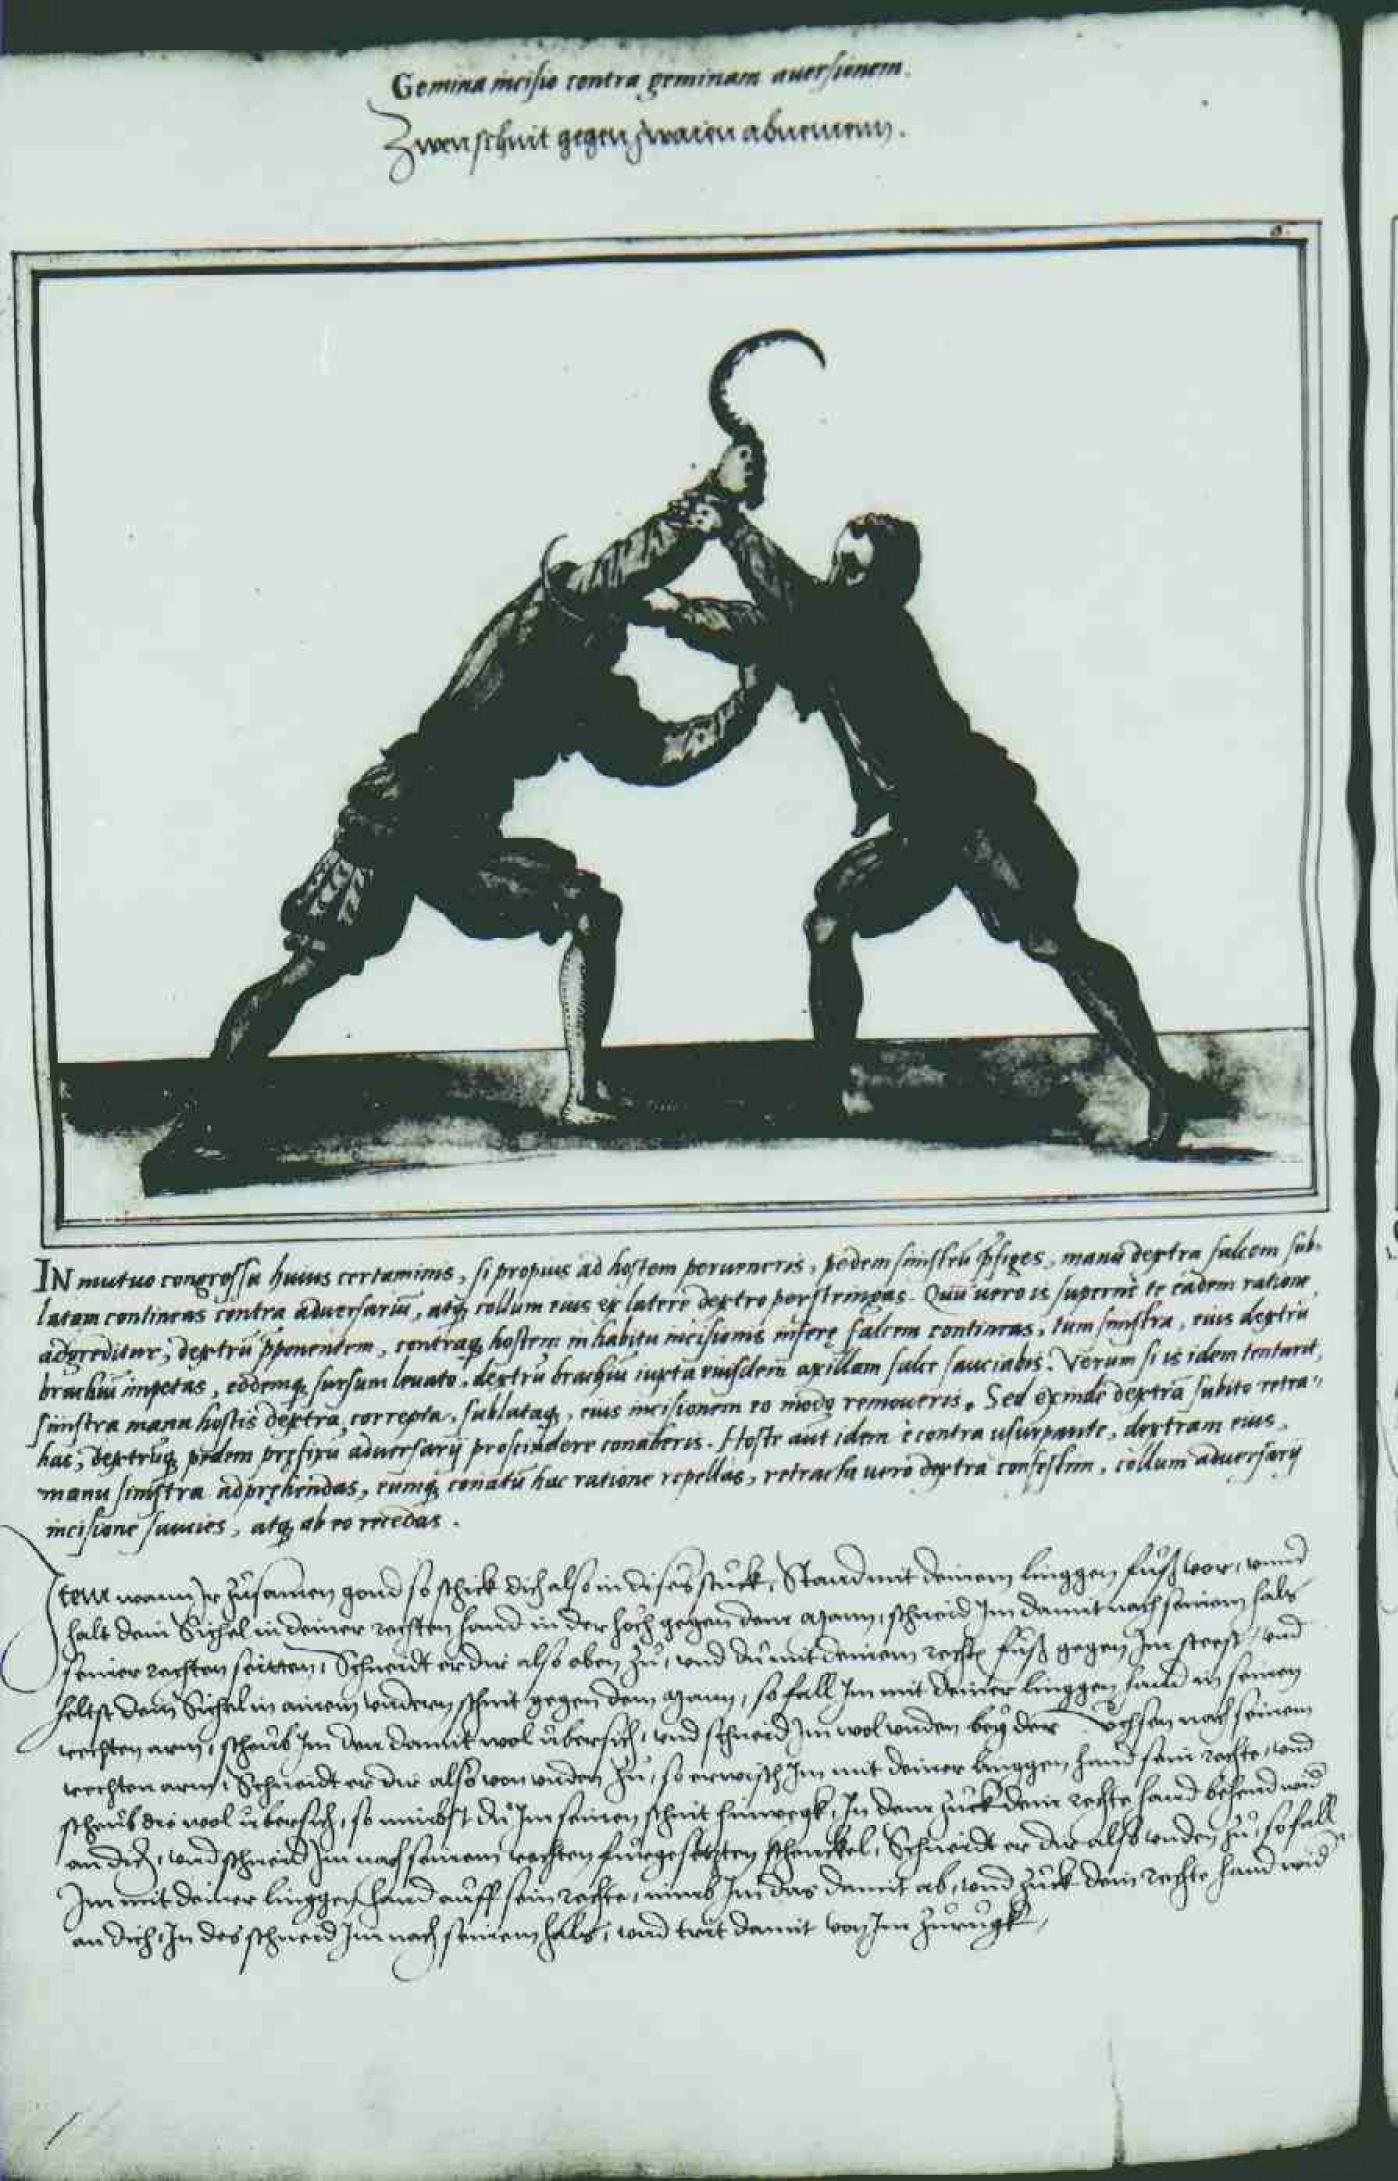 Gemina incisio contra geminam auersionem.
Zwen schnit gegen zwaien abnemen.
6.
IN mutuo congressu huius certaminis, si propius ad hostem perueneris, pedem sinistrũ p̃figes, manu dextra falcem sub-
latam contineas contra aduersariũ, atq; collum eius ex latere dextro perstringas. Quũ uero is superne te eadem ratione
adgreditur, dextrũ p̃ponentem, contraq; hostem in habitu incisionis inferę falcem contineas, tum sinistra, eius dextrũ
brachiũ impetas, eodemq; sursum leuato, dextrũ brachiũ iuxta eiusdem axillam falce sauciabis. Verum si is idem tentarit,
sinistra manu hostis dextra correpta, sublataq;, eius incisionem eo modo remoueris. Sed exinde dextrã subito retra-
has, dextrũq; pedem prefixũ aduersarij proscindere conaberis. Hoste aut idem è contra usurpante, dextram eius,
manu sinistra adprehendas, eumq; conatũ hac ratione repellas, retracta uero dextra confestim, collum aduersarij
incisione saucies, atq; ab eo recedas.
Item wann Ir zůsamen gond so schick dich also in dises stuck, Stand mit deinem linggen fůß vor, vnnd
halt dein Sichel in deiner rechten hand in der hoch gegen dem Mann, schneid Im damit nach seinem hals
seiner rechten seitten, Schneidt er dir also oben zů, vnd du mit deinem recht fůß gegen Im steest, vnd
heltst dein Sichel in ainem vndern schnit gegen dem Mann, so fall Im mit deiner linggen hand in seinen
rechten arm, scheub Im den damit wol übersich, vnd schneid Im wol vnden bey der Vchsen nach seinem
rechten arm, Schneidt er dir also von vnden zů, so erwisch Im mit deiner linggen hand sein rechte, vnd
scheub die wol übersich, so nimbst du Im seinen schnit hinwegk, In dem zuck dein rechte hand behend wid
an dich, vnd schneid Im nach seinem rechten fürgesetzten schenckel, Schneidt er dir also vnden zů, so fall
Im mit deiner linggen hand auff sein rechte, nimb Im das damit ab, vnd zuck dein rechte hand wid
an dich, In des schneid Im nach seinem hals, vnd trit damit von Im zurugk,